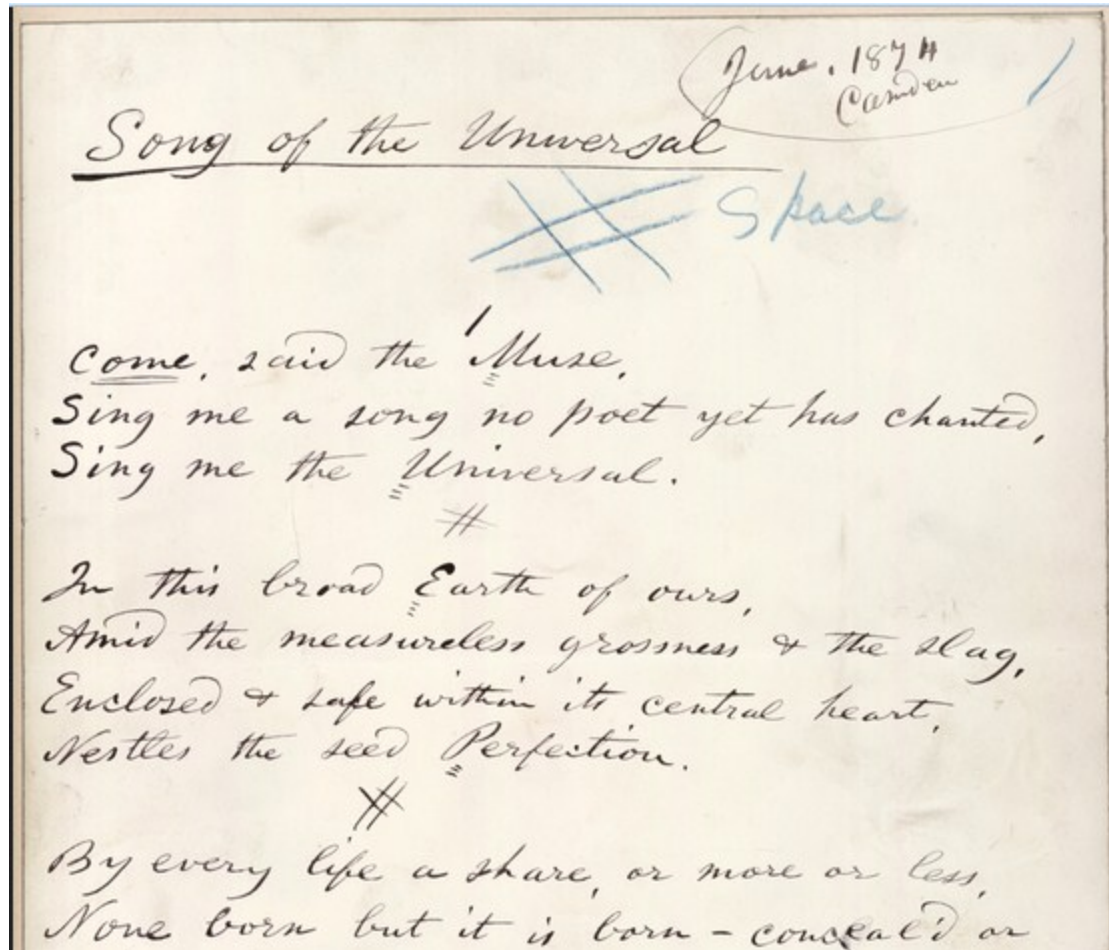 June, 1874
Camden
Song of the Universal
# Space
1
Come, said the Muse,
Sing me a song no poet yet has chanted,
Sing me the Universal.
#
In this broad Earth of ours,
Amid the measureless grossness & the slag,
Enclosed & safe within its central heart,
Nestles the seed Perfection.
#
By every life a share, or more or less,
None born but it is born – conceal'd or